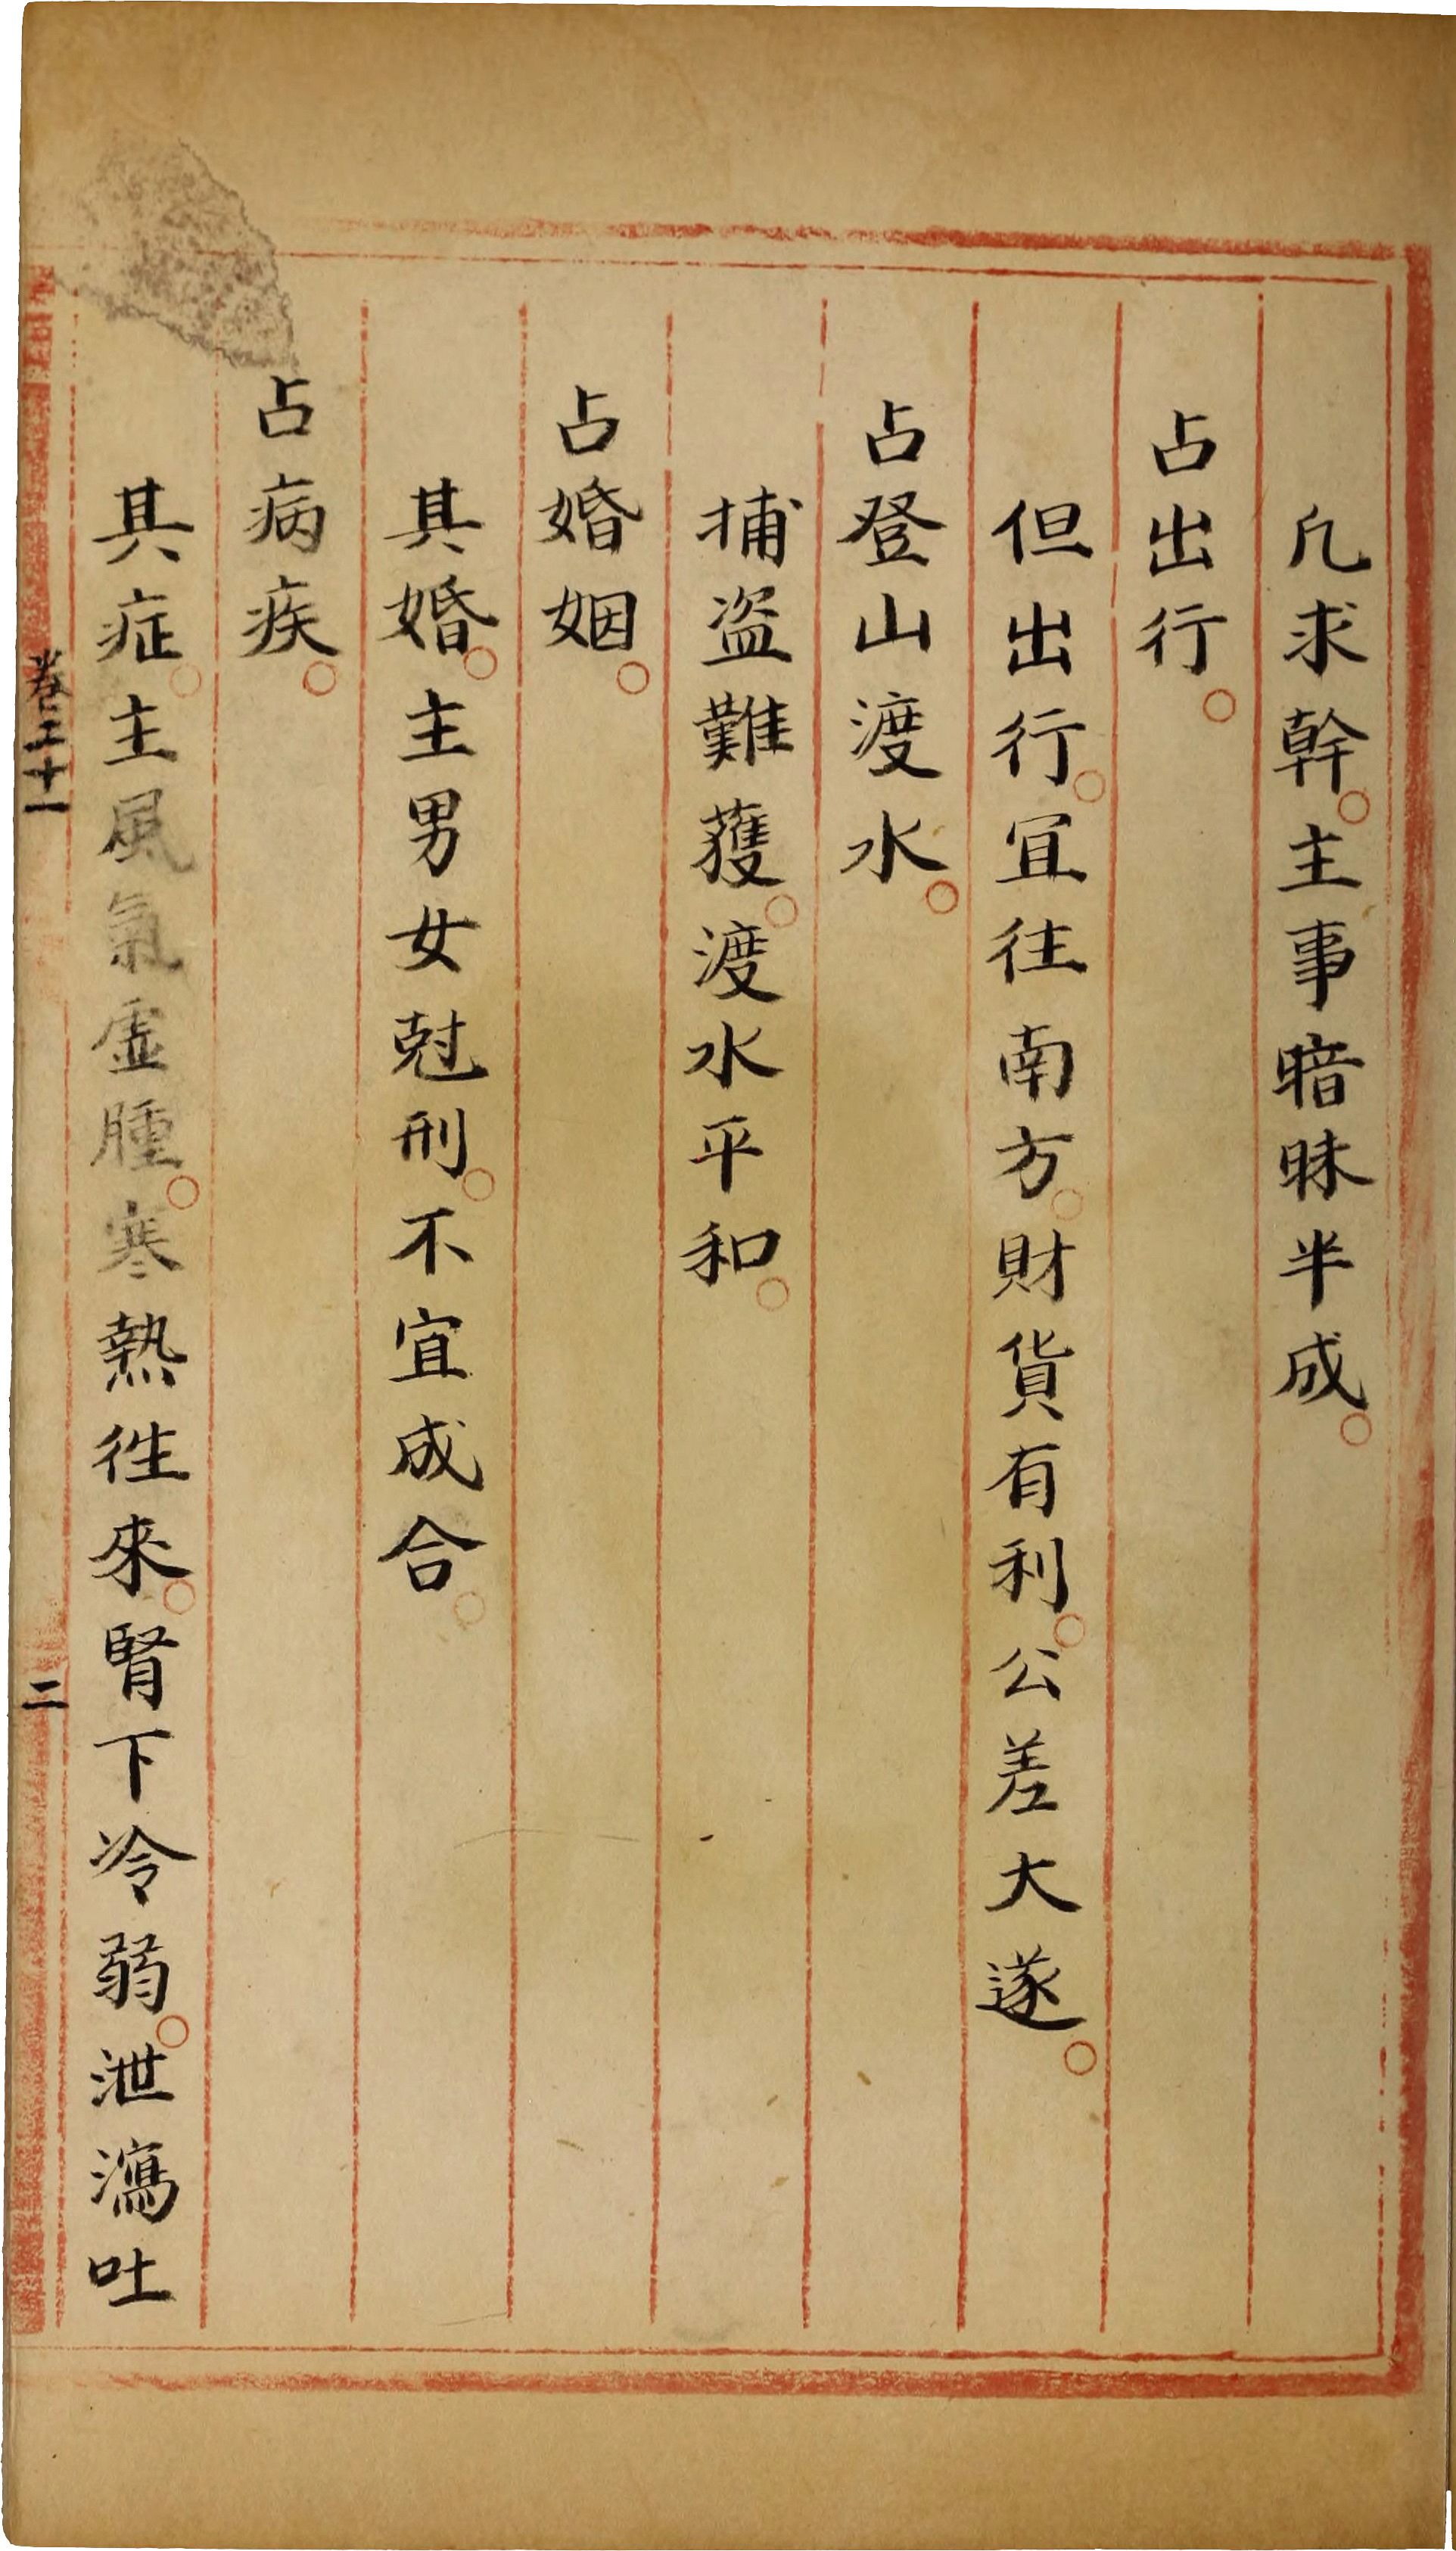 凡求幹○主事暗昧半成○
占出行○
但出行○宜往南方○財貨有利○公差大遂○
占登山渡水○
捕盗難獲○渡水平和○
占婚姻○
其婚○主男女尅刑○不宜成合○
占病疾○
其症○主風氣虛腫○寒熱徃來○腎下冷弱○泄瀉吐
卷二十一
二